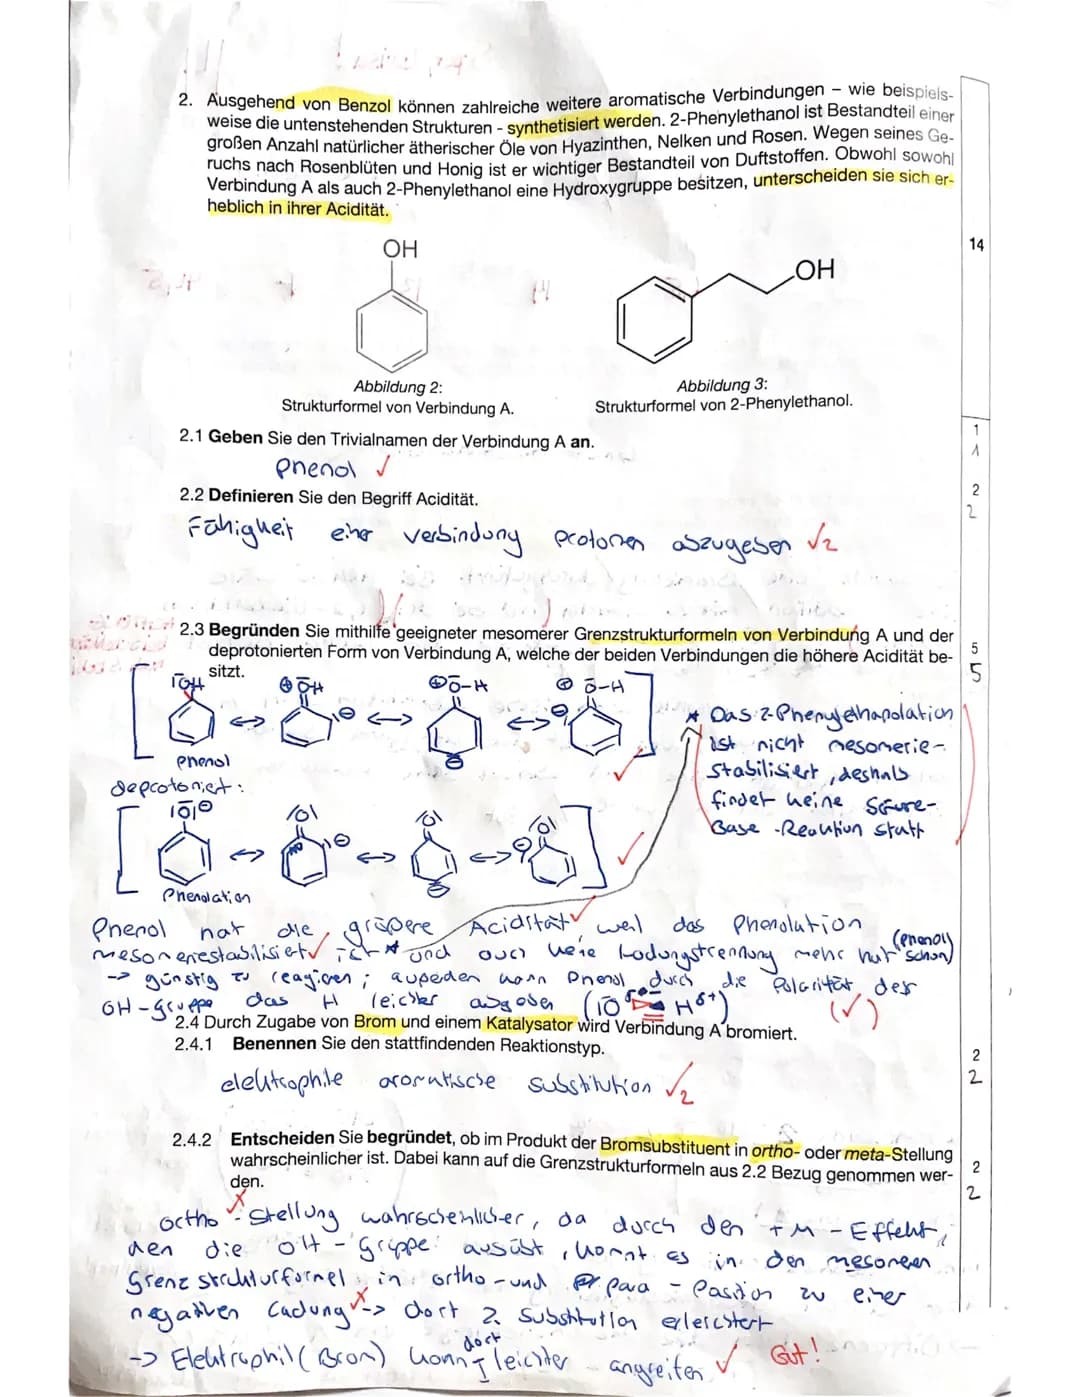 2. Ausgehend von Benzol können zahlreiche weitere aromatische Verbindungen – wie beispiels-
weise die untenstehenden Strukturen - synthetisiert werden. 2-Phenylethanol ist Bestandteil einer
großen Anzahl natürlicher ätherischer Öle von Hyazinthen, Nelken und Rosen. Wegen seines Ge-
ruchs nach Rosenblüten und Honig ist er wichtiger Bestandteil von Duftstoffen. Obwohl sowohl
Verbindung A als auch 2-Phenylethanol eine Hydroxygruppe besitzen, unterscheiden sie sich er-
heblich in ihrer Acidität.
14
OH
OH
Abbildung 2:
Strukturformel von Verbindung A.
Abbildung 3:
Strukturformel von 2-Phenylethanol.
2.1 Geben Sie den Trivialnamen der Verbindung A an.
1
1
Phenol ✓
2.2 Definieren Sie den Begriff Acidität.
2
2
Fähigkeit einer Verbindung Protonen abzugeben ✓2
2.3 Begründen Sie mithilfe geeigneter mesomerer Grenzstrukturformeln von Verbindung A und der
deprotonierten Form von Verbindung A, welche der beiden Verbindungen die höhere Acidität be-
sitzt.
5
5
Phenol
deprotoniert:
Phenolation
* Das 2-Phenylethanolation
ist nicht mesomerie-
stabilisiert, deshalb
findet keine Säure-
Base-Reaktion statt
Phenol hat die größere Acidität ✓, weil das Phenolation
mesomeriestabilisiert ✓ ist * und auch keine Ladungstrennung mehr hat (Phenol schon)
-> günstig zu reagieren; außerdem kann Phenol durch die Polarität der
OH-Gruppe das H leichter abgeben (✓)
2.4 Durch Zugabe von Brom und einem Katalysator wird Verbindung A bromiert.
2.4.1 Benennen Sie den stattfindenden Reaktionstyp.
2
2
elektrophile aromatische Substitution ✓2
2.4.2 Entscheiden Sie begründet, ob im Produkt der Bromsubstituent in ortho- oder meta-Stellung
wahrscheinlicher ist. Dabei kann auf die Grenzstrukturformeln aus 2.2 Bezug genommen wer-
den.
2
2
ortho-Stellung wahrscheinlicher, da durch den +M-Effekt,
den die OH-Gruppe ausübt, kommt es in den mesomeren
Grenzstrukturformel in ortho- und para-Position zu einer
negativen Ladung -> dort 2. Substitution erleichtert
-> Elektrophil (Brom) kann dort leichter angreifen ✓ Gut!